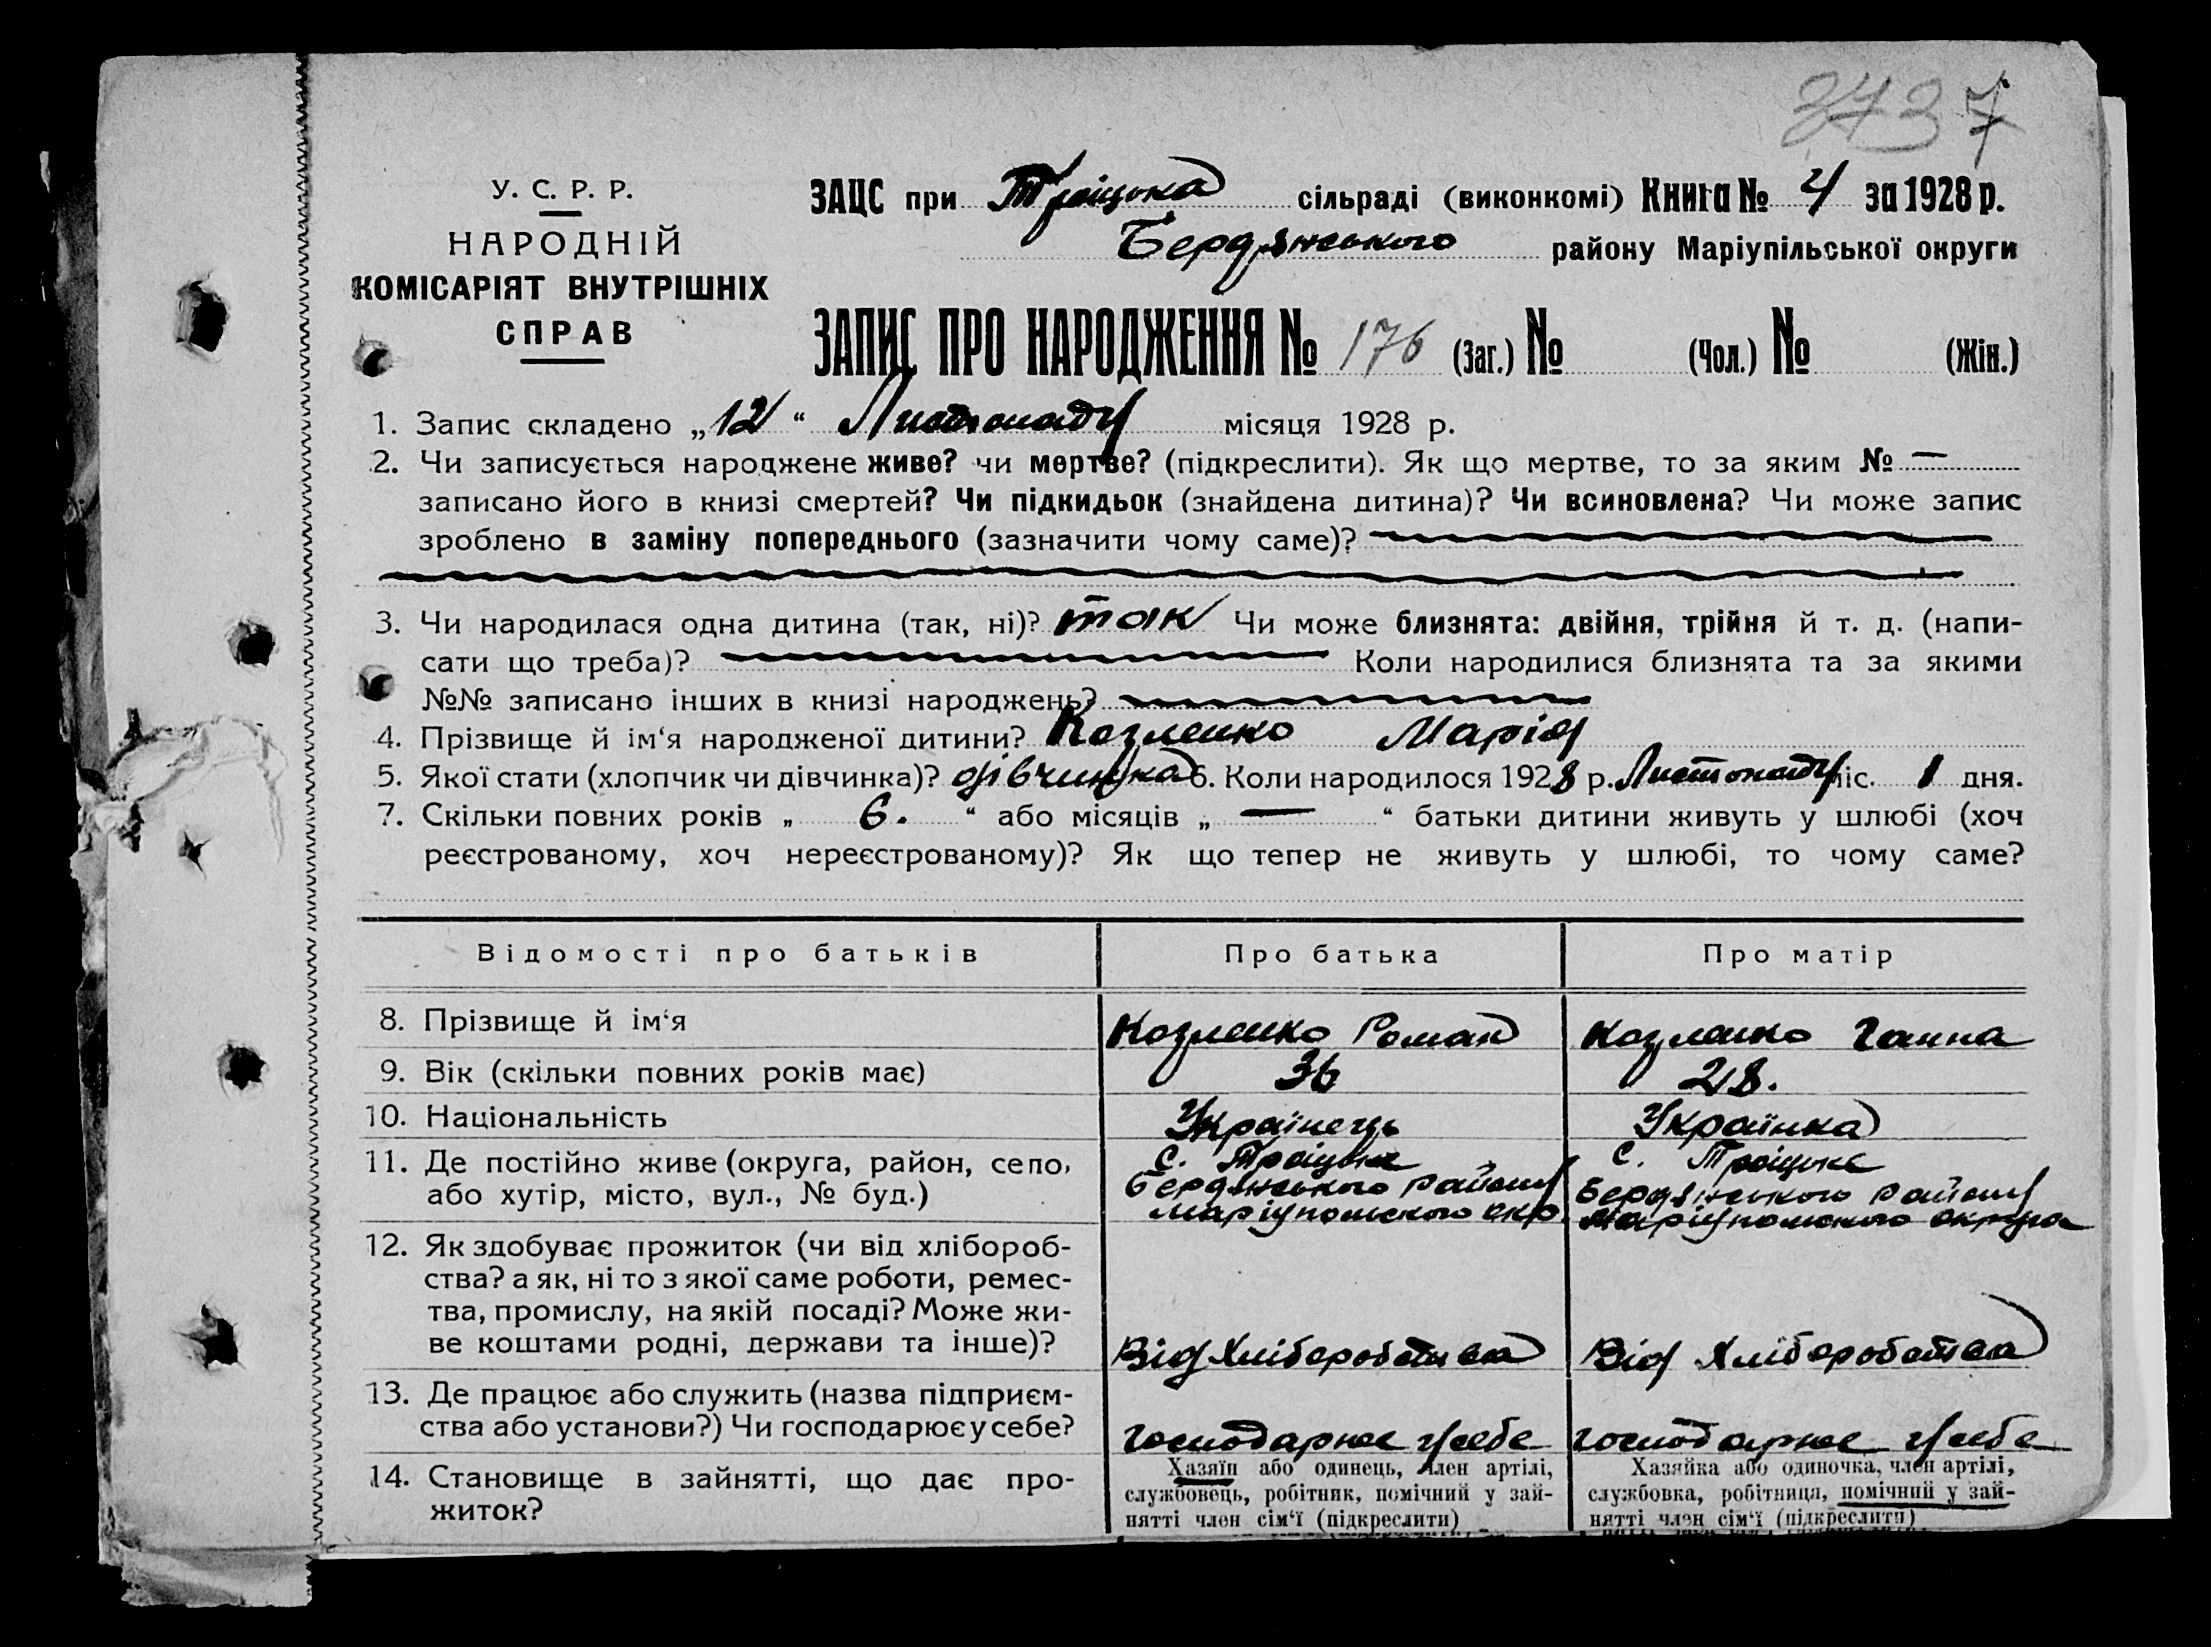 3737
У. С. Р. Р.
НАРОДНІЙ
КОМІСАРІЯТ ВНУТРІШНІХ
СПРАВ
ЗАЦС при Троіцька сільраді (виконкомі) Книга № 4 за 1928 р.
Бердянського району Маріупільської округи
ЗАПИС ПРО НАРОДЖЕННЯ № 176 (Заг.) № (Чол.) № (Жін.)
1. Запис складено „12“ Листопаду місяця 1928 р.
2. Чи записується народжене живе? чи мертве? (підкреслити). Як що мертве, то за яким № —
записано його в книзі смертей? Чи підкидьок (знайдена дитина)? Чи всиновлена? Чи може запис
зроблено в заміну попереднього (зазначити чому саме)?
3. Чи народилася одна дитина (так, ні)? так Чи може близнята: двійня, трійня й т. д. (напи-
сати що треба)? Коли народилися близнята та за якими
№№ записано інших в книзі народжень?
4. Прізвище й ім‘я народженої дитини? Козленко Марія
5. Якої стати (хлопчик чи дівчинка)? дівчинка 6. Коли народилося 1928 р. Листопаду міс. 1 дня.
7. Скільки повних років „ 6. “ або місяців „ — “ батьки дитини живуть у шлюбі (хоч
реєстрованому, хоч нереєстрованому)? Як що тепер не живуть у шлюбі, то чому саме?
Відомості про батьків Про батька Про матір
8. Прізвище й ім‘я Козленко Роман Козленко Ганна
9. Вік (скільки повних років має) 36 28.
10. Національність Українець Українка
11. Де постійно живе (округа, район, село, с. Троіцьке с. Троіцьке
або хутір, місто, вул., № буд.) Бердянського району Бердянського району
Маріупольского окр. Маріупольского округа
12. Як здобуває прожиток (чи від хлібороб-
ства? а як, ні то з якої саме роботи, ремес-
тва, промислу, на якій посаді? Може жи-
ве коштами родні, держави та інше)? Від Хліборобства Від Хліборобства
13. Де працює або служить (назва підприєм-
ства або установи?) Чи господарює у себе? господарює у себе господарює у себе
14. Становище в зайнятті, що дає про-
житок?
Хазяїн або одинець, член артілі,
службовець, робітник, помічний у зай-
нятті член сім‘ї (підкреслити)
Хазяйка або одиночка, член артілі,
службовка, робітниця, помічний у зай-
нятті член сім‘ї (підкреслити)